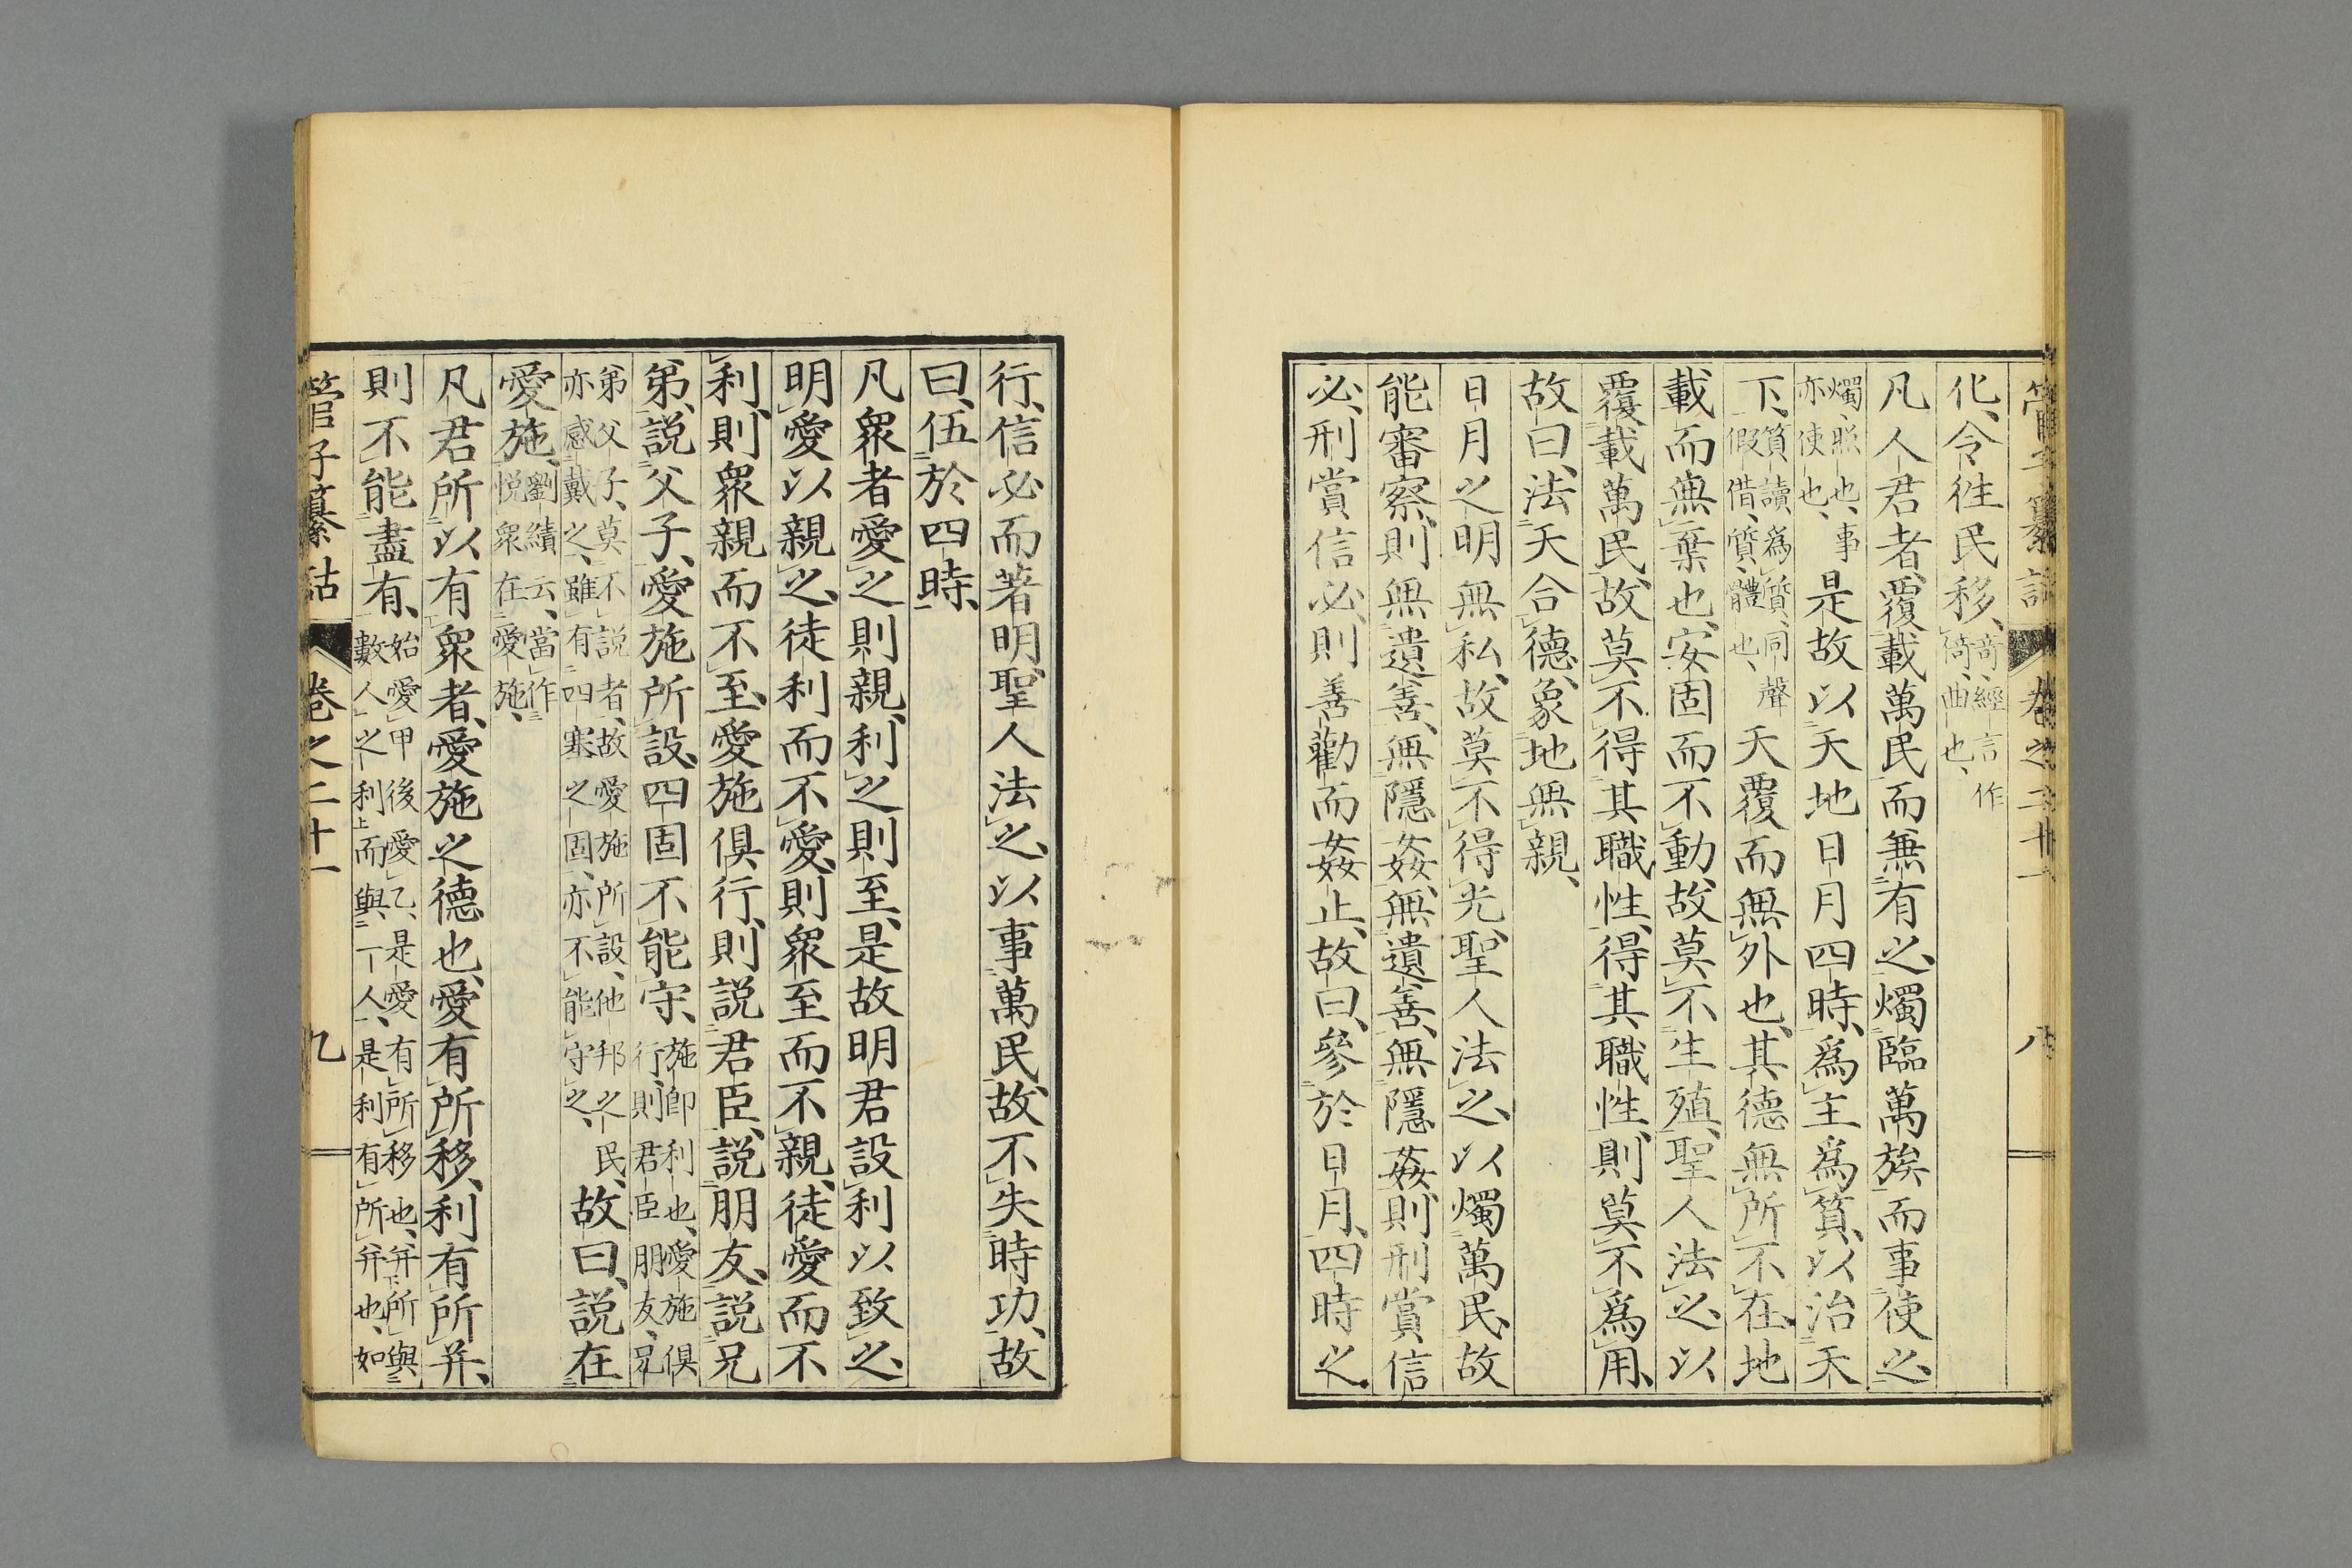 管子纂詁 卷之二十一 八
化、令往民移、奇、經言作倚、曲也、
凡人君者、覆載萬民而兼有之、燭臨萬族、而事使之、
燭、照也、事亦使也、是故以天地日月四時、爲主爲質、以治天
下、質讀爲質、同聲假借、質、體也、天覆而無外也、其德無所不在、地
載而無棄也、安固而不動、故莫不生殖、聖人法之、以
覆載萬民、故莫不得其職性、得其職性、則莫不爲用、
故曰、法天合德、象地無親、
日月之明無私、故莫不得光、聖人法之、以燭萬民、故
能審察、則無遺善、無隱姦、無遺善、無隱姦、則刑賞信
必、刑賞信必、則善勸而姦止、故曰、參於日月、四時之
行、信必而著明、聖人法之、以事萬民、故不失時功、故
曰、伍於四時、
凡衆者、愛之則親、利之則至、是故明君設利以致之、
明愛以親之、徒利而不愛、則衆至而不親、徒愛而不
利、則衆親而不至、愛施俱行、則説君臣、説朋友、説兄
弟、説父子、愛施所設、四固不能守、施卽利也、愛施俱行、則君臣朋友、兄
弟父子、莫不説者、故愛施所設、他邦之民、亦感戴之、雖有四塞之固、亦不能守之、故曰、説在
愛施、劉績云、當作悅衆在愛施、
凡君所以有衆者、愛施之德也、愛有所移、利有所并、
則不能盡有、始愛甲後愛乙、是愛有所移也、并下所與數人之利上而與一人、是利有所并也、如
管子纂詁 卷之二十一 九